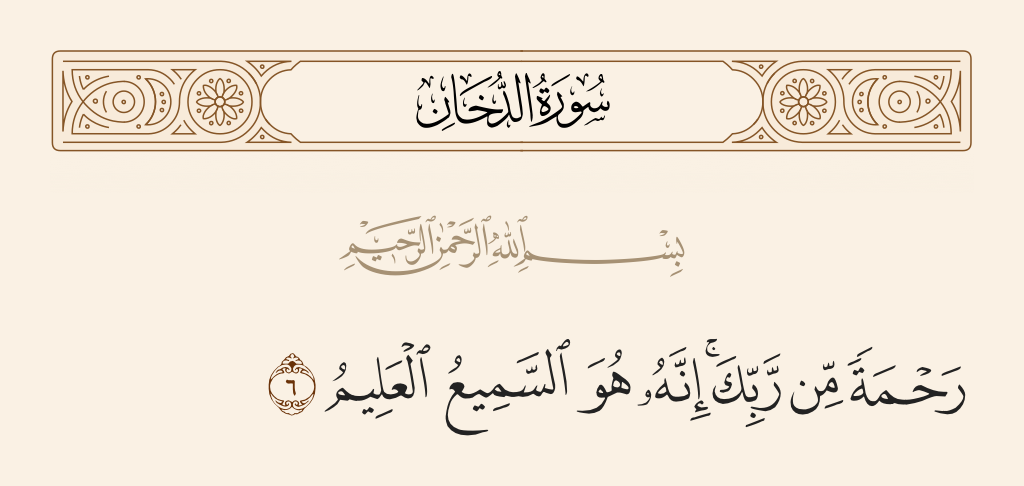 سُورَةُ الدُّخَانِ
بِسْمِ ٱللَّهِ ٱلرَّحْمَٰنِ ٱلرَّحِيمِ
رَحْمَةً مِّن رَّبِّكَ ۚ إِنَّهُۥ هُوَ ٱلسَّمِيعُ ٱلْعَلِيمُ ٦